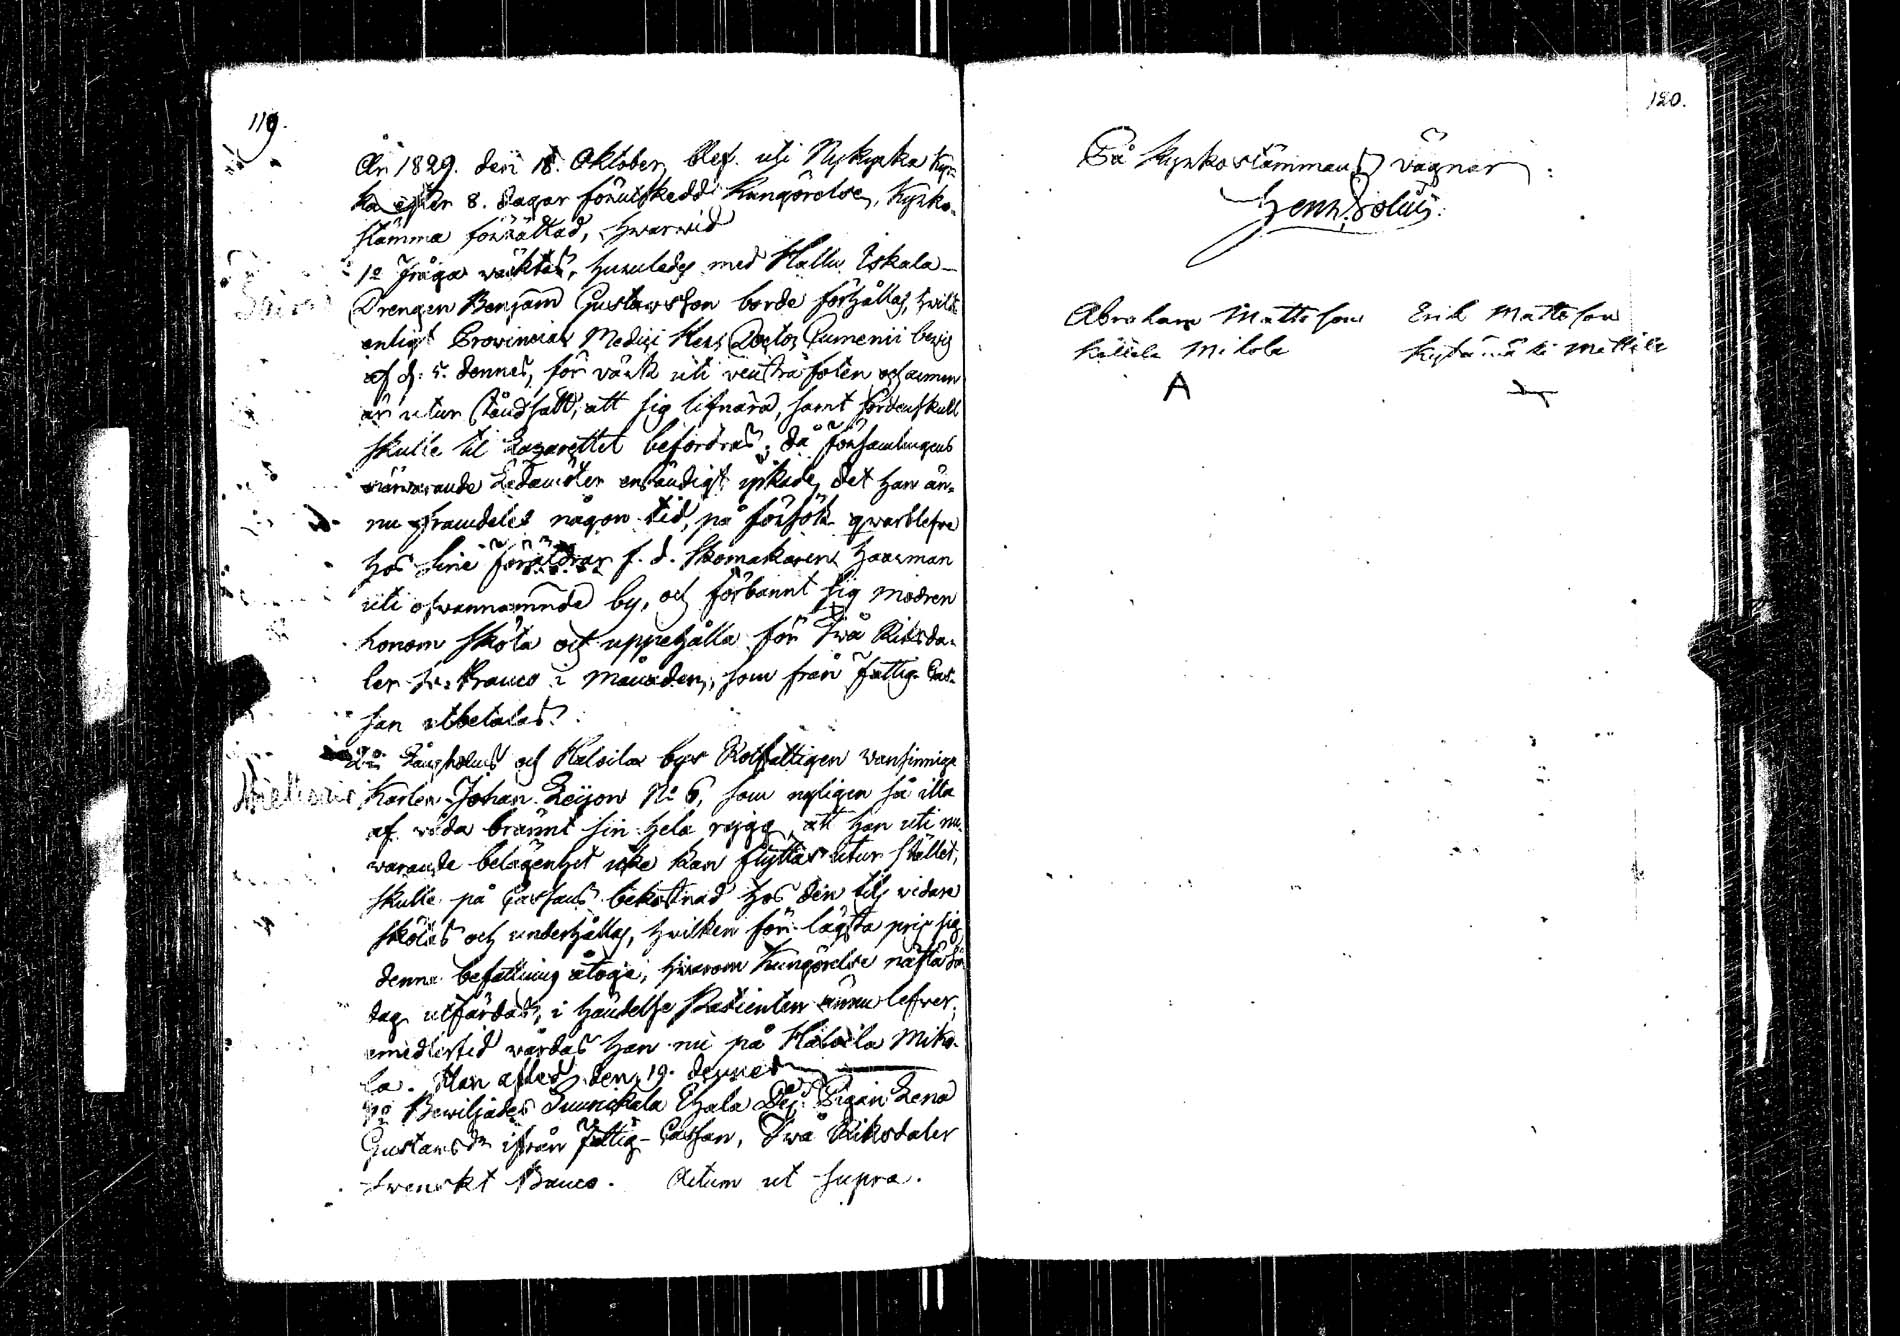 119.
År 1829. den 18. Oktober, blef uti Nykyrka Kyr=
ka efter 8. dagar förutskedd Kungörelse, Kyrko-
stämma förrättad, hwarwid
1o Fråga väcktes, huruledes med Hallu Iskala
Drengen Benjam Gustawsson borde förhållas, hvilk
enligt Provincial Medici Herr Doctor Lumenii bevis
af d: 5. dennes, för värk uti venstra foten och armen
är utur stånd satt, att sig lifnära, samt fördenskull
skulle til Lazarettet befordras; då Församlingens
närwarande Ledamöter enhändigt yrkade, det han än-
nu framdeles någon tid, på försök qwarblefve
hos sine föräldrar f. d. Skomakaren Haarman
uti ofwannämnde by, och förbannt sig modren
honom sköta och uppehålla för Två Riksda-
ler Sv: Banco i månaden, som från Fattig Cas-
san utbetalas.
2o Långholms och Haloila bys Rotfattigen wansinniga
Karlen Johan Leijon No 6, som nyligen så illa
af våda brännt sin hela rygg, att han uti nu-
warande belägenhet icke kan flyttas utur stället,
skulle på Cassans bekostnad hos den tils vidare
skötas och underhållas, hvilken för lägsta pris sig
denna befattning åtoge, hvarom Kungörelse nästa Sön
dag utfärdas, i händelse Patienten ännu lefver;
emedlertid vårdas han nu på Haloila Miko-
la. Han afled den 19. dennes
3o Beviljades Suurickala Ohala Dej: Pigan Lena
Gustawsdr ifrån Fattig-Cassan, Två Riksdaler
Svenskt Banco. Actum ut supra.
120.
På Kyrkostämmans vägnar:
Henr.
Abraham Mattsson Erik Mattsson
Källcla Mikola Kytömäki Mattila
A